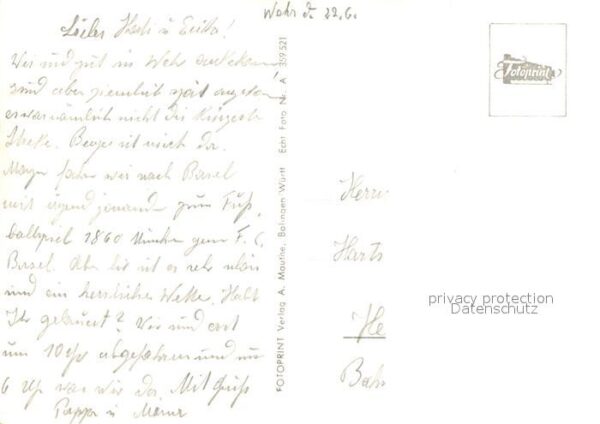 Wehr d. 22.6.
Liebe Hardi u Erika!
Wir sind gut in Wehr angekommen
sind aber ziemlich spät angekom
es war nämlich nicht die kürzeste
Strecke. Berge ist mich da.
Morgen fahren wir nach Basel
mit irgend jemanden zum Fuß,
ballspiel 1860 München gegen F. C.
Basel. Aber hir ist es sehr schön
und ein herrliches Wetter. Habt
Ihr gelauert? Wir sind erst
um 10 Uhr abgefahren und um
6 Uhr war wir da. Mit Gruß
Pappa u Mama
FOTOPRINT Verlag A. Mauthe, Balingen Württ Echt Foto Nr. A 359.521
Fotoprint
Herrn
Harts
He
Bah
privacy protection
Datenschutz